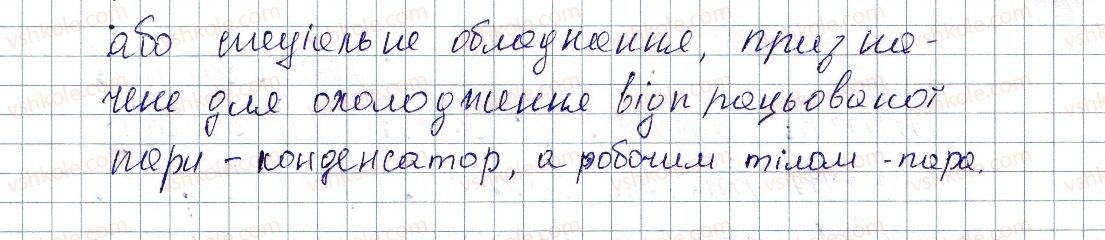 або спеціальне обладнання, призна-
чене для охолодження відпрацьованої
пари - конденсатор, а робочим тілом - пара.